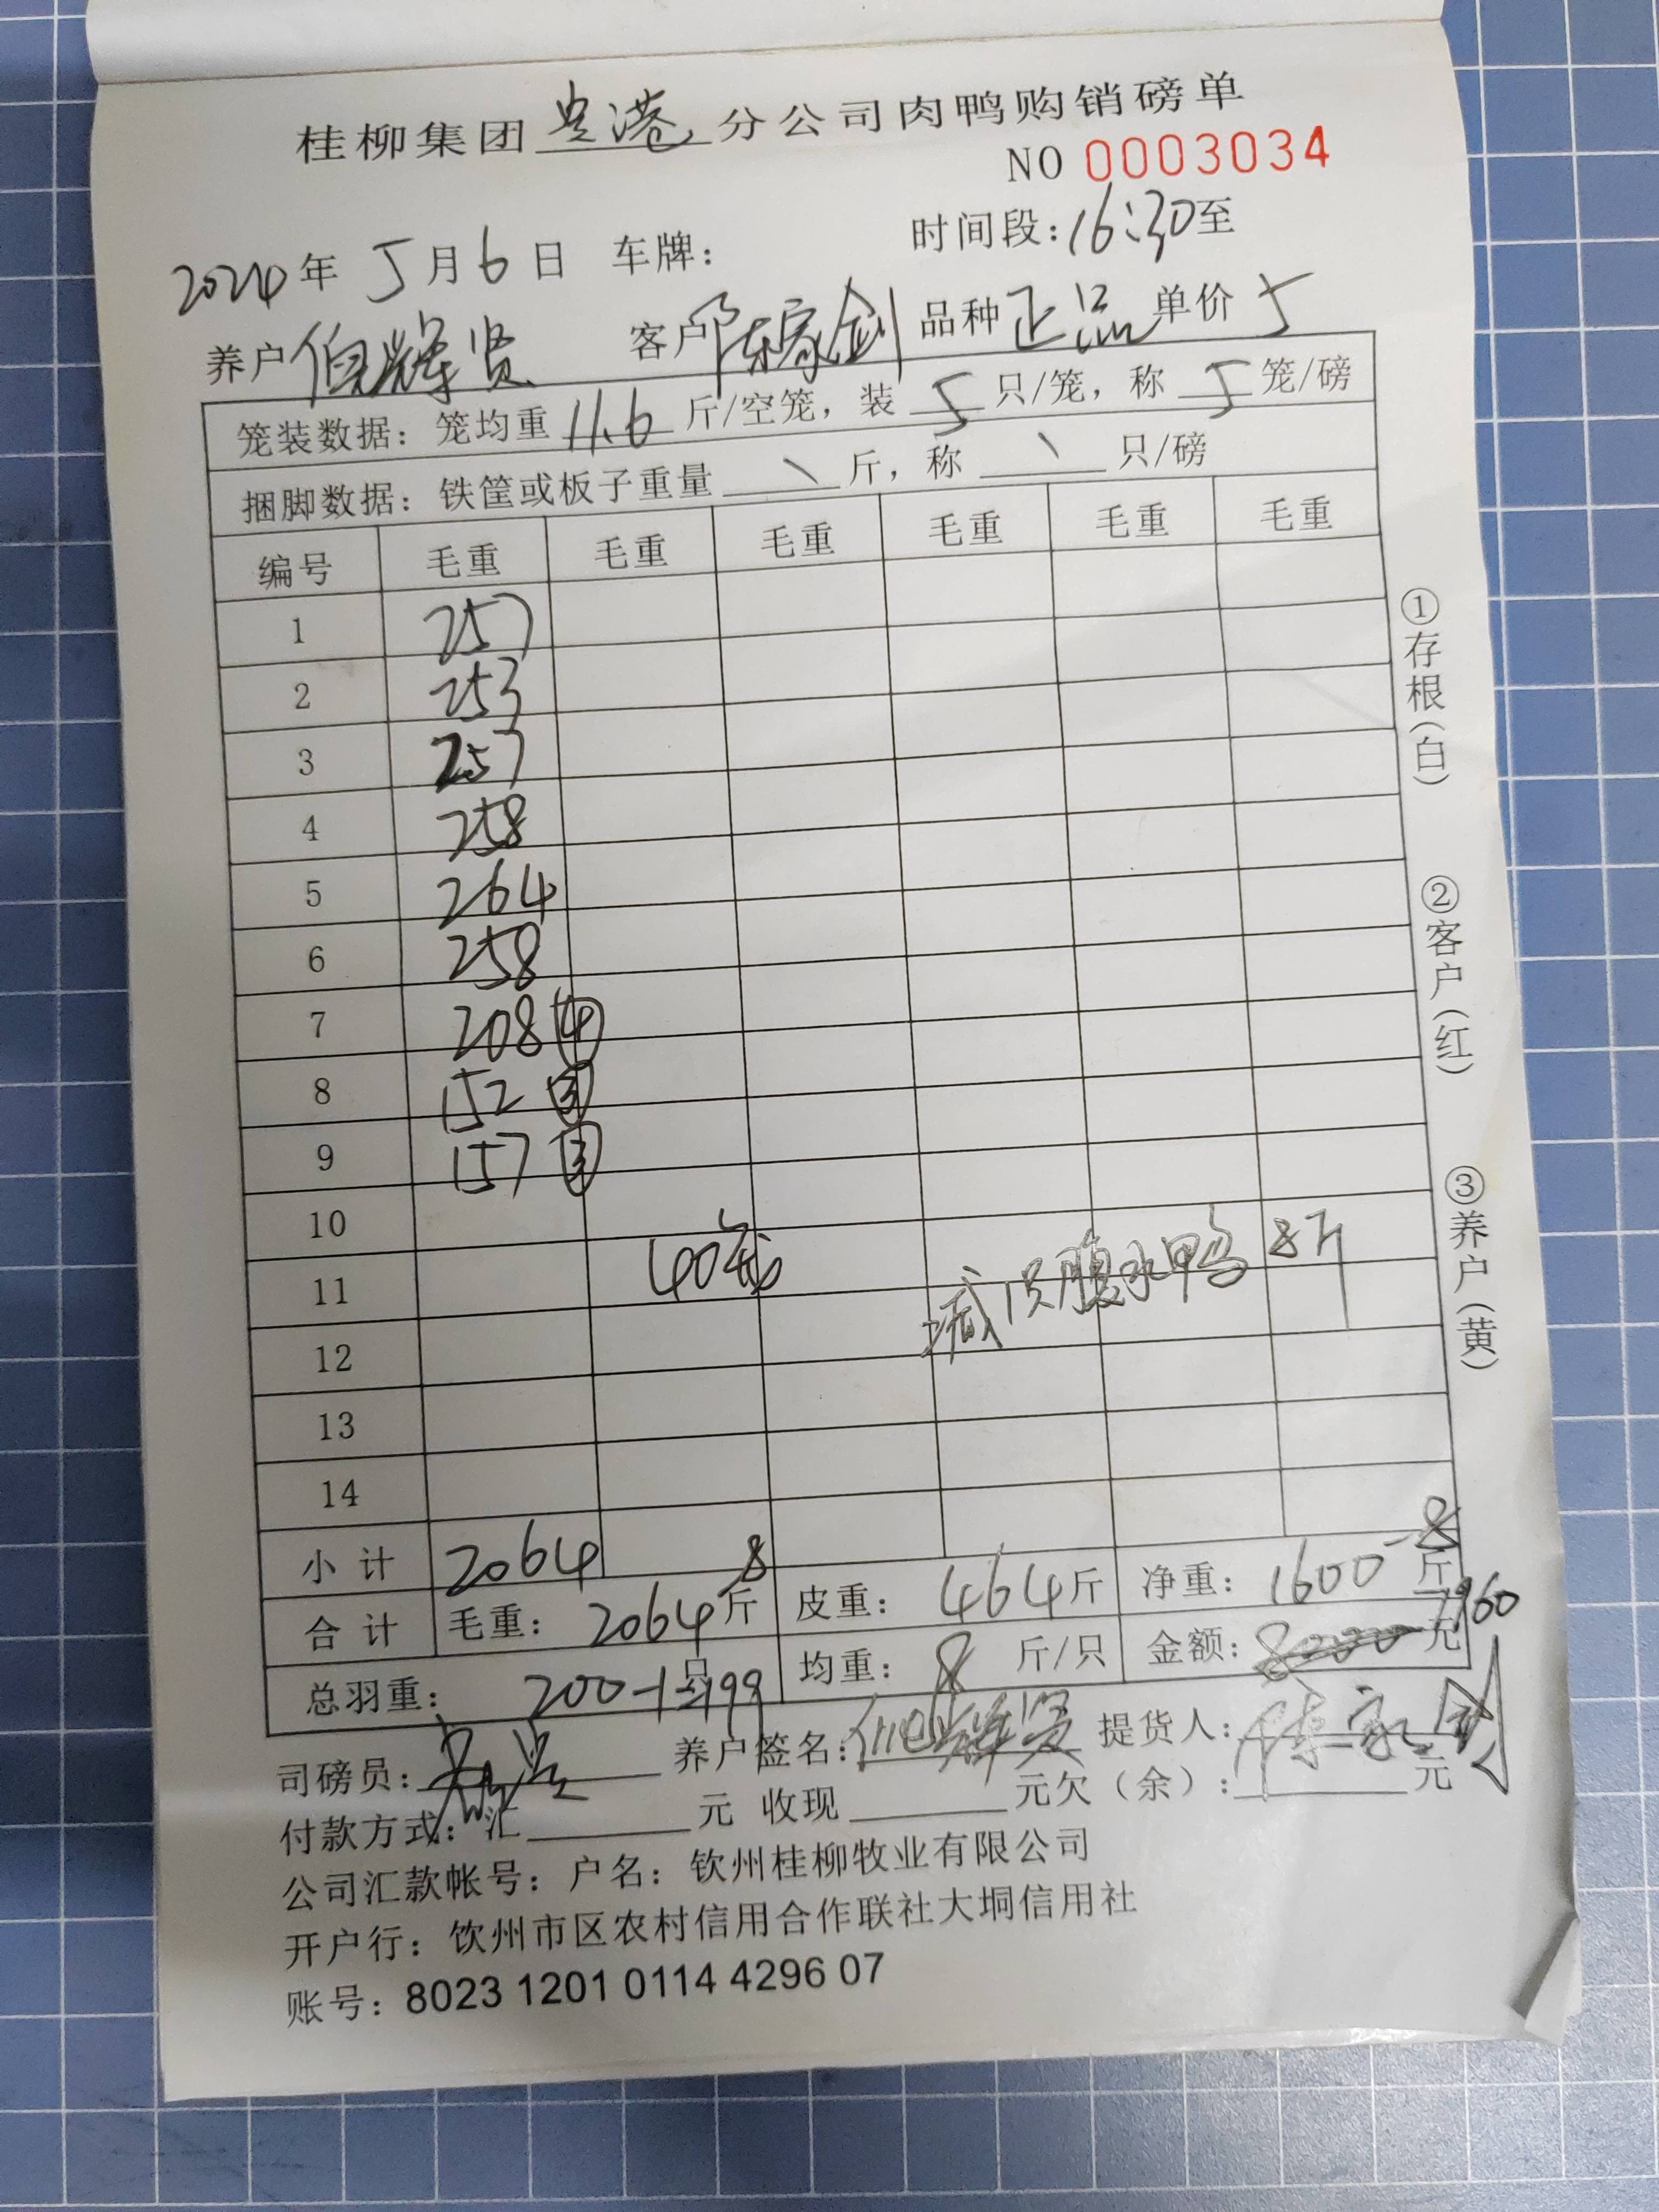 桂柳集团贵港分公司肉鸭购销磅单
NO 0003034
2024年 5月6日 车牌: 时间段:16:30至
养户 伯辉贤 客户 陈家剑 品种 正品 单价 5
笼装数据: 笼均重 11.6 斤/空笼, 装 5 只/笼, 称 5 笼/磅
捆脚数据: 铁筐或板子重量 \ 斤, 称 \ 只/磅
编号 毛重 毛重 毛重 毛重 毛重 毛重
1 257
2 253
3 257
4 258
5 264
6 258
7 208 ④
8 152 ③
9 157 ③
10
11 40笼 减1只腹水鸭 8斤
12
13
14
小计 2064
合计 毛重: 2064斤 皮重: 464斤 净重: 1600-8斤
总羽重: 200-1=199只 均重: 8 斤/只 金额: 8000元 7960
司磅员: 养户签名: 伯辉贤 提货人: 陈家剑
付款方式: 汇 元 收现 元欠(余): 元
公司汇款帐号: 户名: 钦州桂柳牧业有限公司
开户行: 钦州市区农村信用合作联社大垌信用社
账号: 8023 1201 0114 4296 07
①存根(白)
②客户(红)
③养户(黄)